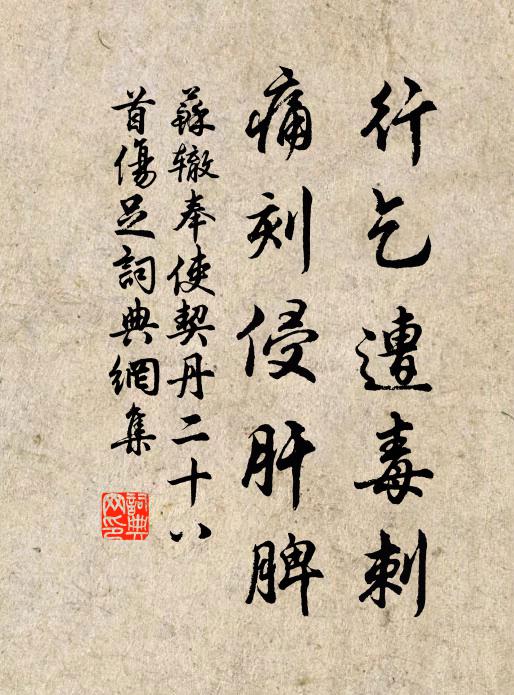 行乞遭毒刺
痛刻侵肝脾
蘇辙奉使契丹二十八
首傷足詞典網集
詞典
网印